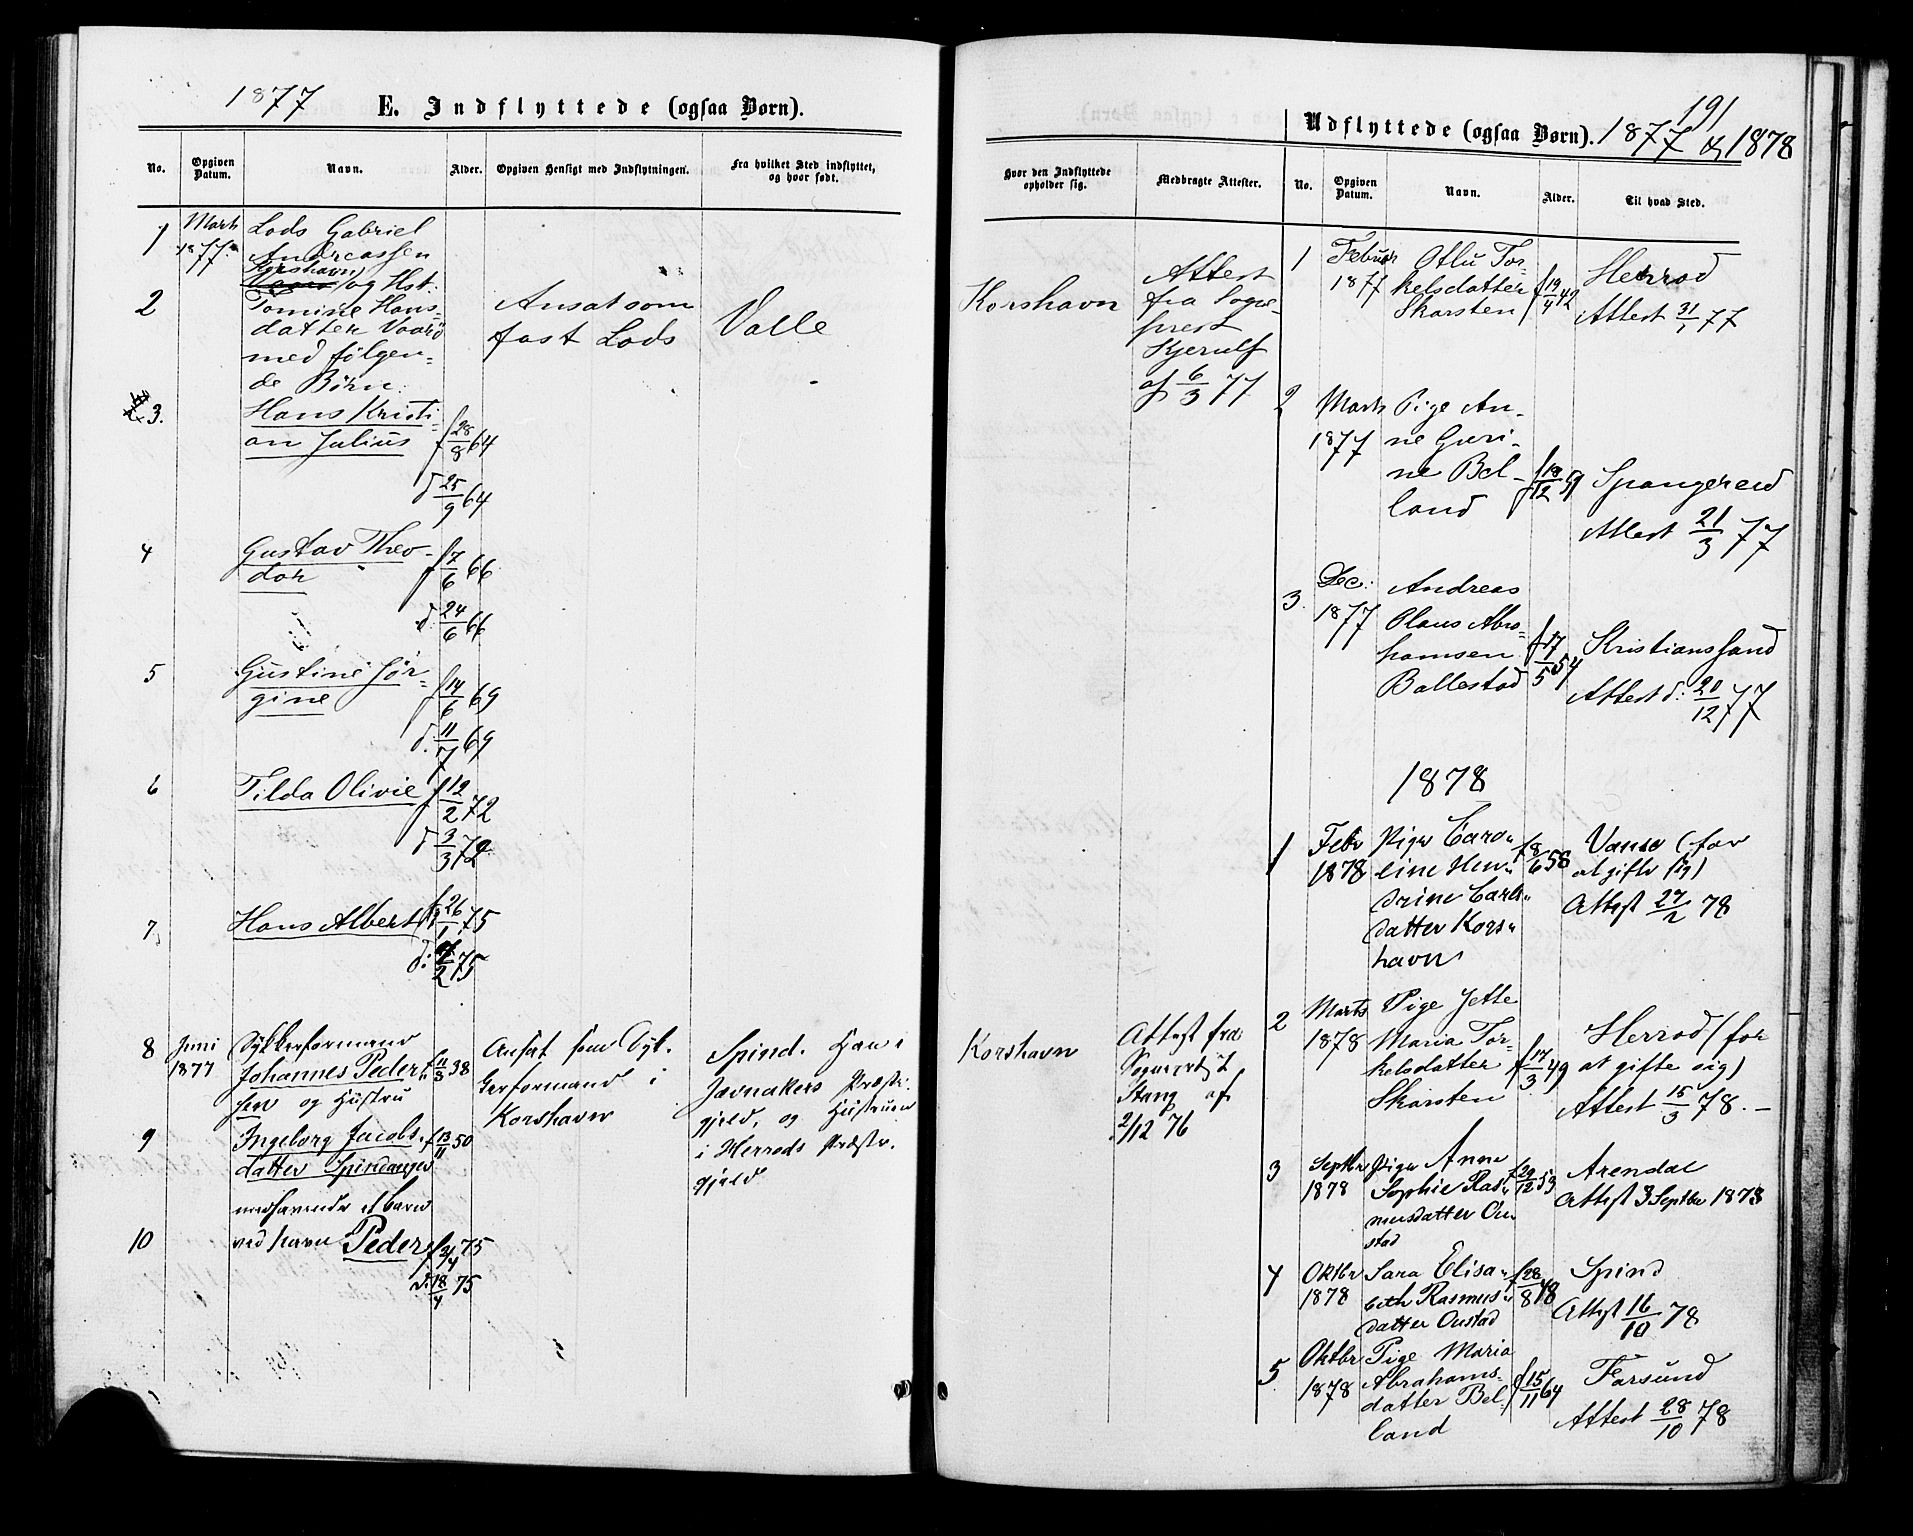 1877
E. Indflyttede (ogsaa Børn).
No.
Opgiven Datum.
Navn.
Alder.
Opgiven Hensigt med Indflytningen.
Fra hvilket Sted indflyttet,
og hvor født.
1
Marts
1877.
Lods Gabriel
Andreassen
Korshavn
og Hst.
2
Tomine Hans-
datter Vaarø
med følgen-
de Børn.
Ansat som
fast Lods
Valle
3.
Hans Kristi-
an Julius
f 28/8 64
d 25/9 64
4
Gustav Theo-
dor
f 7/6 66
d. 24/6 66
5
Gustine Jør-
gine
f 14/6 69
d. 11/7 69
6
Tilda Olivie
f 12/2 72
d 3/3 72
7
Hans Albert
f 26/1 75
8
Juni
1877
Dykkerformand
Johannes Peder-
sen og Hustru
f 11/3 38
Ansat som Dyk-
kerformand i
Korshavn
Spind. Han i
Jævnakers Præste-
gjeld, og Hustruen
i Herreds Præste-
gjeld
9
Ingeborg Jacobs-
datter Spindanger
f 13/11 50
medhavende et barn
10
ved Navn Peder
f 3/4 75
d. 18/4 75
191
Udflyttede (ogsaa Børn). 1877 & 1878
Hvor den Indflyttede
opholder sig.
Medbragte Attester.
No.
Opgiven
Datum.
Navn.
Alder.
Til hvad Sted.
Korshavn
Attest
fra Sogne-
prest
Kjerulf
af 6/3 77
Korshavn
Attest fra
Sogneprest
Stang af
2/12 76
1
Februar
1877
Otlu Tor-
kelsdatter
Skarsten
f 19/4 42
Herrød
Attest 31/1 77
2
Marts
1877
Pige An-
ne Guri-
ne Bel-
land
f 18/12 59
Spangereid
Attest 21/3 77
3.
Dec.
1877
Andreas
Olaus Abra-
hamsen
Ballestad
f 17/5 54
Kristianssand
Attest d. 20/12 77
1878
1
Febr
1878
Pige Caro-
line Hen-
drine Carls-
datter Kors-
havn
f 8/6 58
Vanse (for
at gifte sig)
Attest 27/2 78
2
Marts
1878
Pige Jette
Maria Tor-
kelsdatter
Skarsten
f 17/3 49
Herrød (for
at gifte sig)
Attest 15/3 78. -
3
Septbr
1878
Pige Anne
Sophie Ras-
musdatter Ou-
stad
f 29/12 53
Arendal
Attest 3 Septbr 1878
4
Oktbr
1878
Sara Elisa-
beth Rasmus-
datter Oustad
f 28/8 48
Spind
Attest 16/10 78
5
Oktbr
1878
Pige Maria
Abrahams-
datter Bel-
land
f 15/11 64
Farsund
Attest 28/10 78